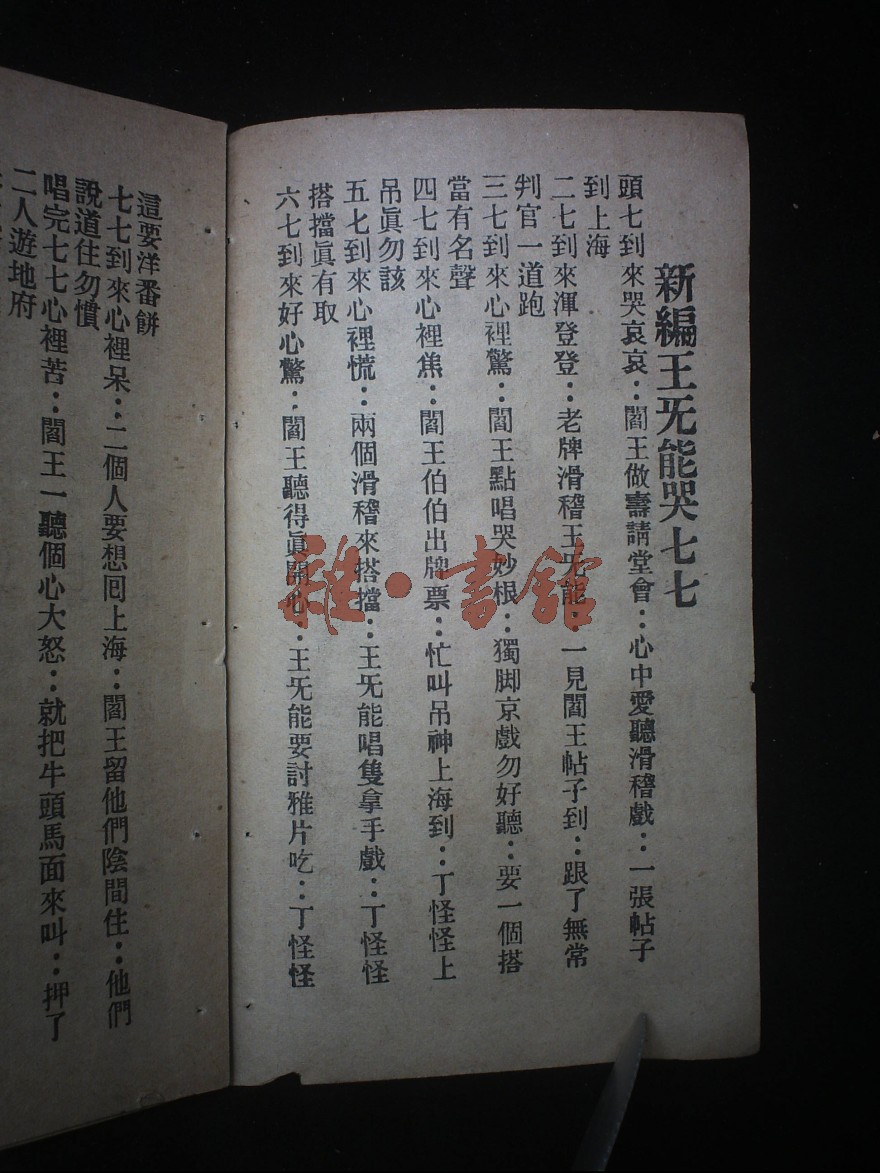 新編王旡能哭七七
頭七到來哭哀哀：閻王做壽請堂會：心中愛聽滑稽戲：一張帖子
到上海
二七到來渾登登：老牌滑稽王旡能：一見閻王帖子到：跟了無常
判官一道跑
三七到來心裡驚：閻王點唱哭妙根：獨脚京戲勿好聽：要一個搭
當有名聲
四七到來心裡焦：閻王伯伯出牌票：忙叫吊神上海到：丁怪怪上
吊眞勿該
五七到來心裡慌：兩個滑稽來搭擋：王旡能唱隻拿手戲：丁怪怪
搭擋眞有取
六七到來好心驚：閻王聽得眞開心：王旡能要討雅片吃：丁怪怪
這要洋番餅
七七到來心裡呆：二個人要想囘上海：閻王留他們陰間住：他們
說道住勿慣
唱完七七心裡苦：閻王一聽個心大怒：就把牛頭馬面來叫：押了
二人遊地府
雜·書館